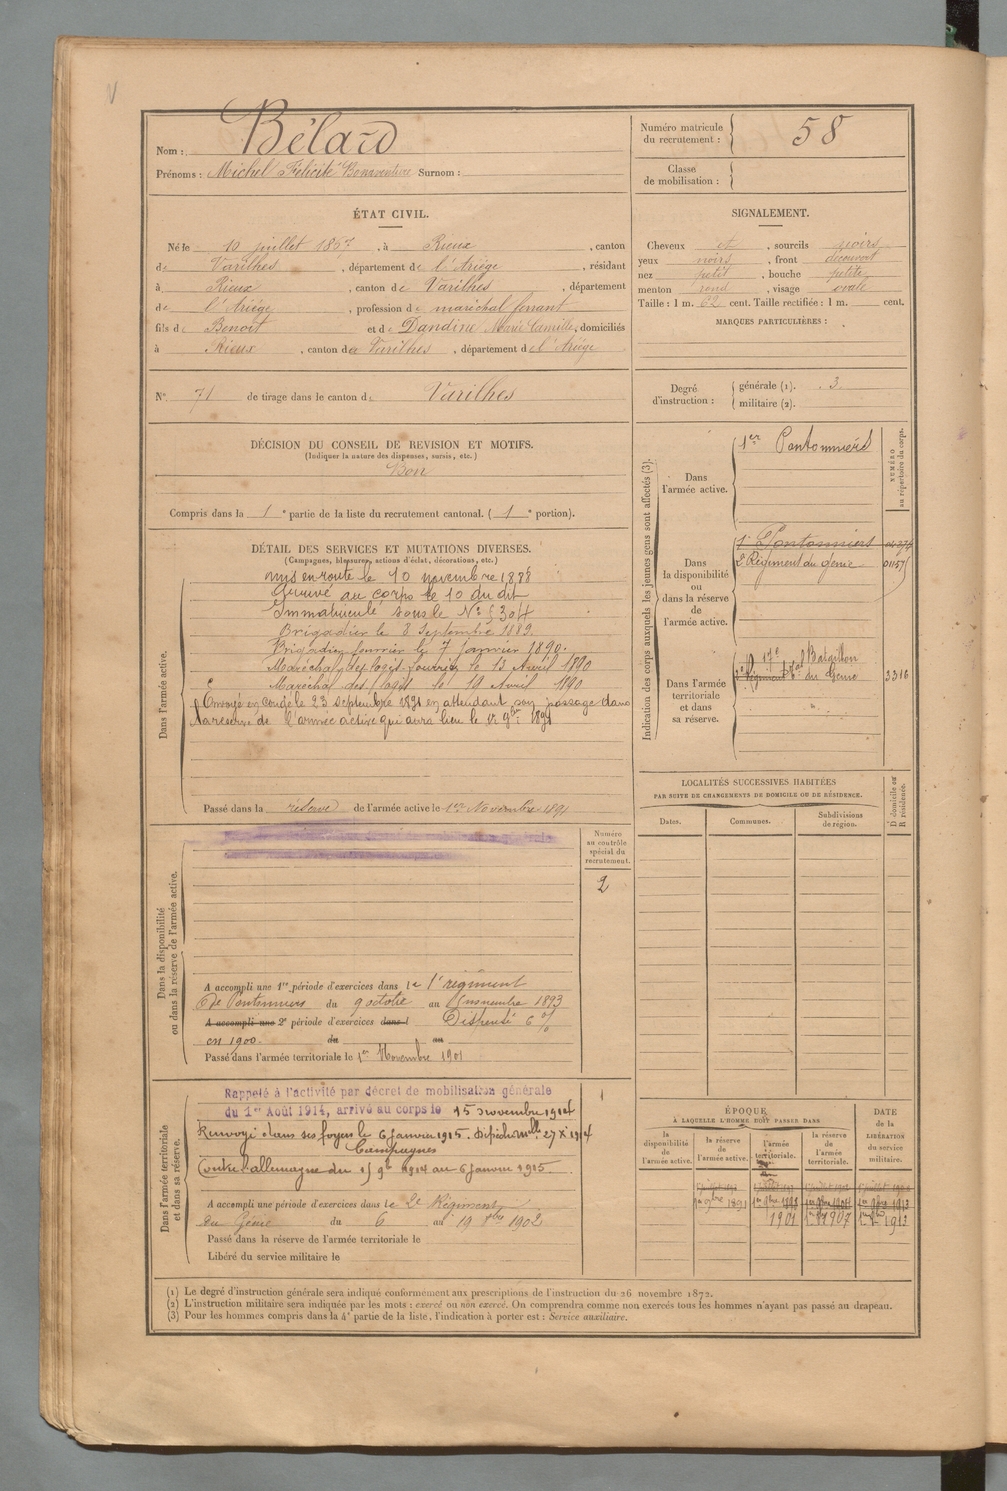 Nom : Bélard
Prénoms : Michel Félicité Bonaventure Surnom :
Numéro matricule du recrutement : 58
Classe de mobilisation :
ÉTAT CIVIL.
Né le 10 juillet 1867, à Rieux, canton
de Varilhes, département de l'Ariège, résidant
à Rieux, canton de Varilhes, département
de l'Ariège, profession de maréchal ferrant
fils de Benoit et de Dandine Marie Camille, domiciliés
à Rieux, canton de Varilhes, département de l'Ariège
SIGNALEMENT.
Cheveux et, sourcils noirs
yeux noirs, front découvert
nez petit, bouche petite
menton rond, visage ovale
Taille : 1 m. 62 cent. Taille rectifiée : 1 m. cent.
MARQUES PARTICULIÈRES :
N° 71 de tirage dans le canton de Varilhes
Degré d'instruction : générale (1). 3
militaire (2).
DÉCISION DU CONSEIL DE REVISION ET MOTIFS.
(Indiquer la nature des dispenses, sursis, etc.)
Bon
Compris dans la 1e partie de la liste du recrutement cantonal. (1e portion).
DÉTAIL DES SERVICES ET MUTATIONS DIVERSES.
(Campagnes, blessures, actions d'éclat, décorations, etc.)
Dans l'armée active.
mis en route le 10 novembre 1888
Arrivé au corps le 10 du dit
Immatriculé sous le N° 5304
Brigadier le 8 Septembre 1889.
Brigadier fourrier le 7 janvier 1890.
Maréchal des logis fourrier le 13 Avril 1890
Maréchal des logis le 19 Avril 1890
Envoyé en congé le 23 septembre 1891 en attendant son passage dans
la réserve de l'armée active qui aura lieu le 1er 9bre 1891
Passé dans la réserve de l'armée active le 1er Novembre 1891
Indication des corps auxquels les jeunes gens sont affectés (3).
NUMÉRO au répertoire du corps.
Dans l'armée active.
1er Pontonniers
Dans la disponibilité ou dans la réserve de l'armée active.
1er Pontonniers
2e Régiment du génie 01157
Dans l'armée territoriale et dans sa réserve.
17e Bataillon
2e Régiment du Génie 3316
LOCALITÉS SUCCESSIVES HABITÉES
PAR SUITE DE CHANGEMENTS DE DOMICILE OU DE RÉSIDENCE.
Dates. Communes. Subdivisions de région. D domicile ou R résidence.
Dans la disponibilité ou dans la réserve de l'armée active.
Numéro au contrôle spécial du recrutement.
2
A accompli une 1re période d'exercices dans le 1er régiment
de Pontonniers du 9 octobre au 5 novembre 1893
A accompli une 2e période d'exercices dans l Dispensé
en 1900. du au
Passé dans l'armée territoriale le 1er Novembre 1901
Dans l'armée territoriale et dans sa réserve.
Rappelé à l'activité par décret de mobilisation générale
du 1er Août 1914, arrivé au corps le 15 novembre 1914
Renvoyé dans ses foyers le 6 janvier 1915. Dépêche mlle 27 X 1914
Campagnes
Contre l'allemagne du 15 9bre 1914 au 6 janvier 1915
A accompli une période d'exercices dans le 2e Régiment
du Génie du 6 au 19 1902
Passé dans la réserve de l'armée territoriale le
Libéré du service militaire le
ÉPOQUE
À LAQUELLE L'HOMME DOIT PASSER DANS
la disponibilité de l'armée active. la réserve de l'armée active. l'armée territoriale. la réserve de l'armée territoriale.
DATE de la LIBÉRATION du service militaire.
1er 9bre 1891
1901 1907 1913
(1) Le degré d'instruction générale sera indiqué conformément aux prescriptions de l'instruction du 26 novembre 1872.
(2) L'instruction militaire sera indiquée par les mots : exercé ou non exercé. On comprendra comme non exercés tous les hommes n'ayant pas passé au drapeau.
(3) Pour les hommes compris dans la 4e partie de la liste, l'indication à porter est : Service auxiliaire.